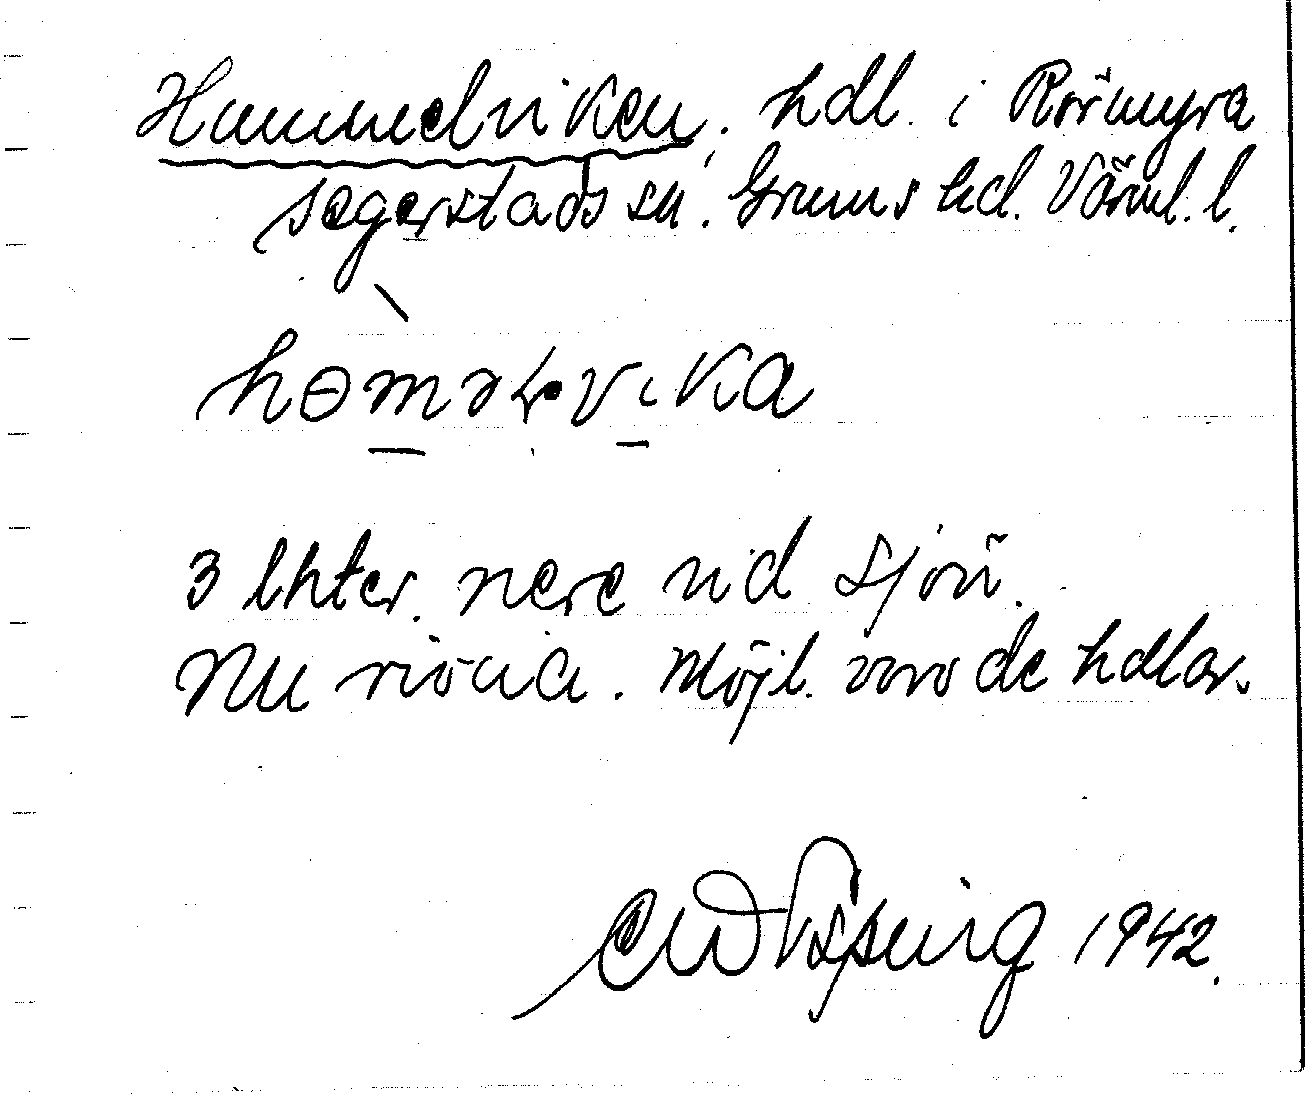 Hummelviken, hdl. i Rörmyra
Segerstads sn. Grums hd. Värml. l.
hɵ̀mələvɩka
3 lhter. nere vid sjön.
Nu rivna. Möjl. voro de hdlar.
1942.